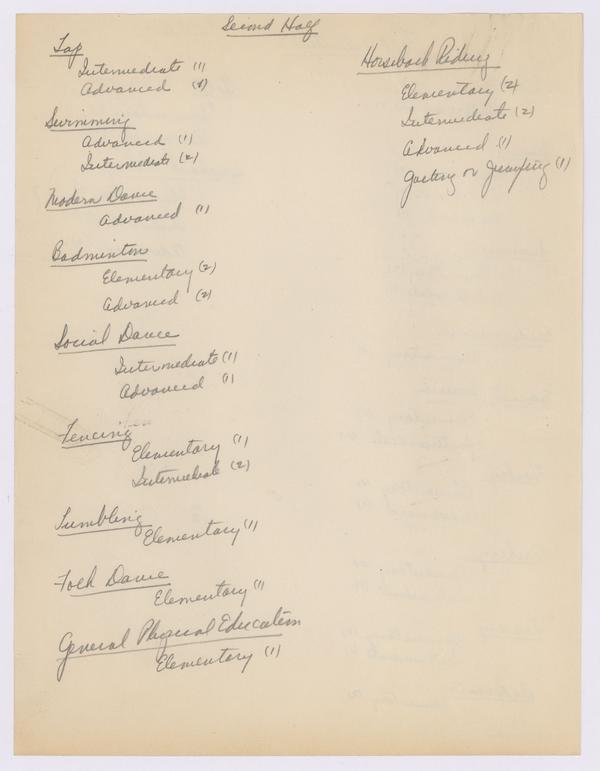 Second Half
Tap
Intermediate (1)
Advanced (1)
Swimming
Advanced (1)
Intermediate (2)
Modern Dance
Advanced (1)
Badminton
Elementary (2)
Advanced (2)
Social Dance
Intermediate (1)
Advanced (1)
Fencing
Elementary (1)
Intermediate (2)
Tumbling
Elementary (1)
Folk Dance
Elementary (1)
General Physical Education
Elementary (1)
Horseback Riding
Elementary (2)
Intermediate (2)
Advanced (1)
or Jumping (1)